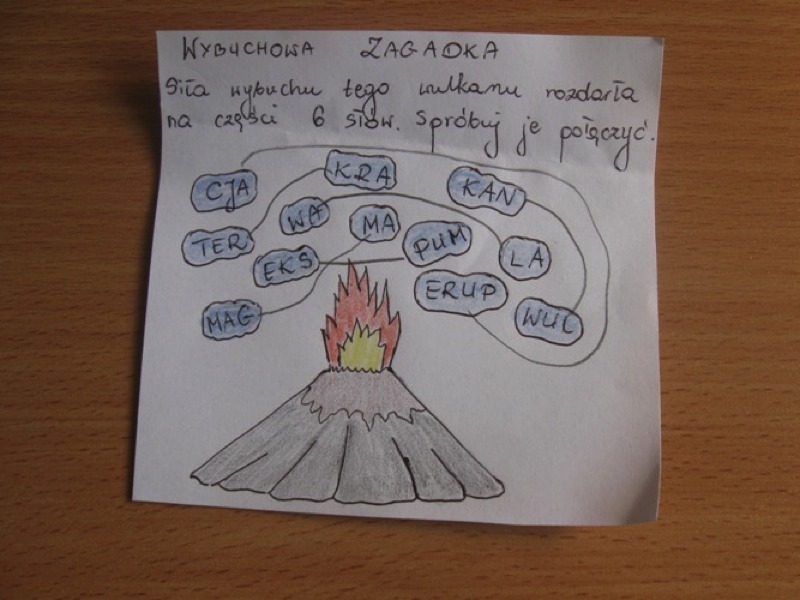 WYBUCHOWA ZAGADKA
Siła wybuchu tego wulkanu rozdarła
na części 6 słów. Spróbuj je połączyć.
CJA
KRA
KAN
WA
MA
TER
PUM
LA
EKS
ERUP
MAG
WUL